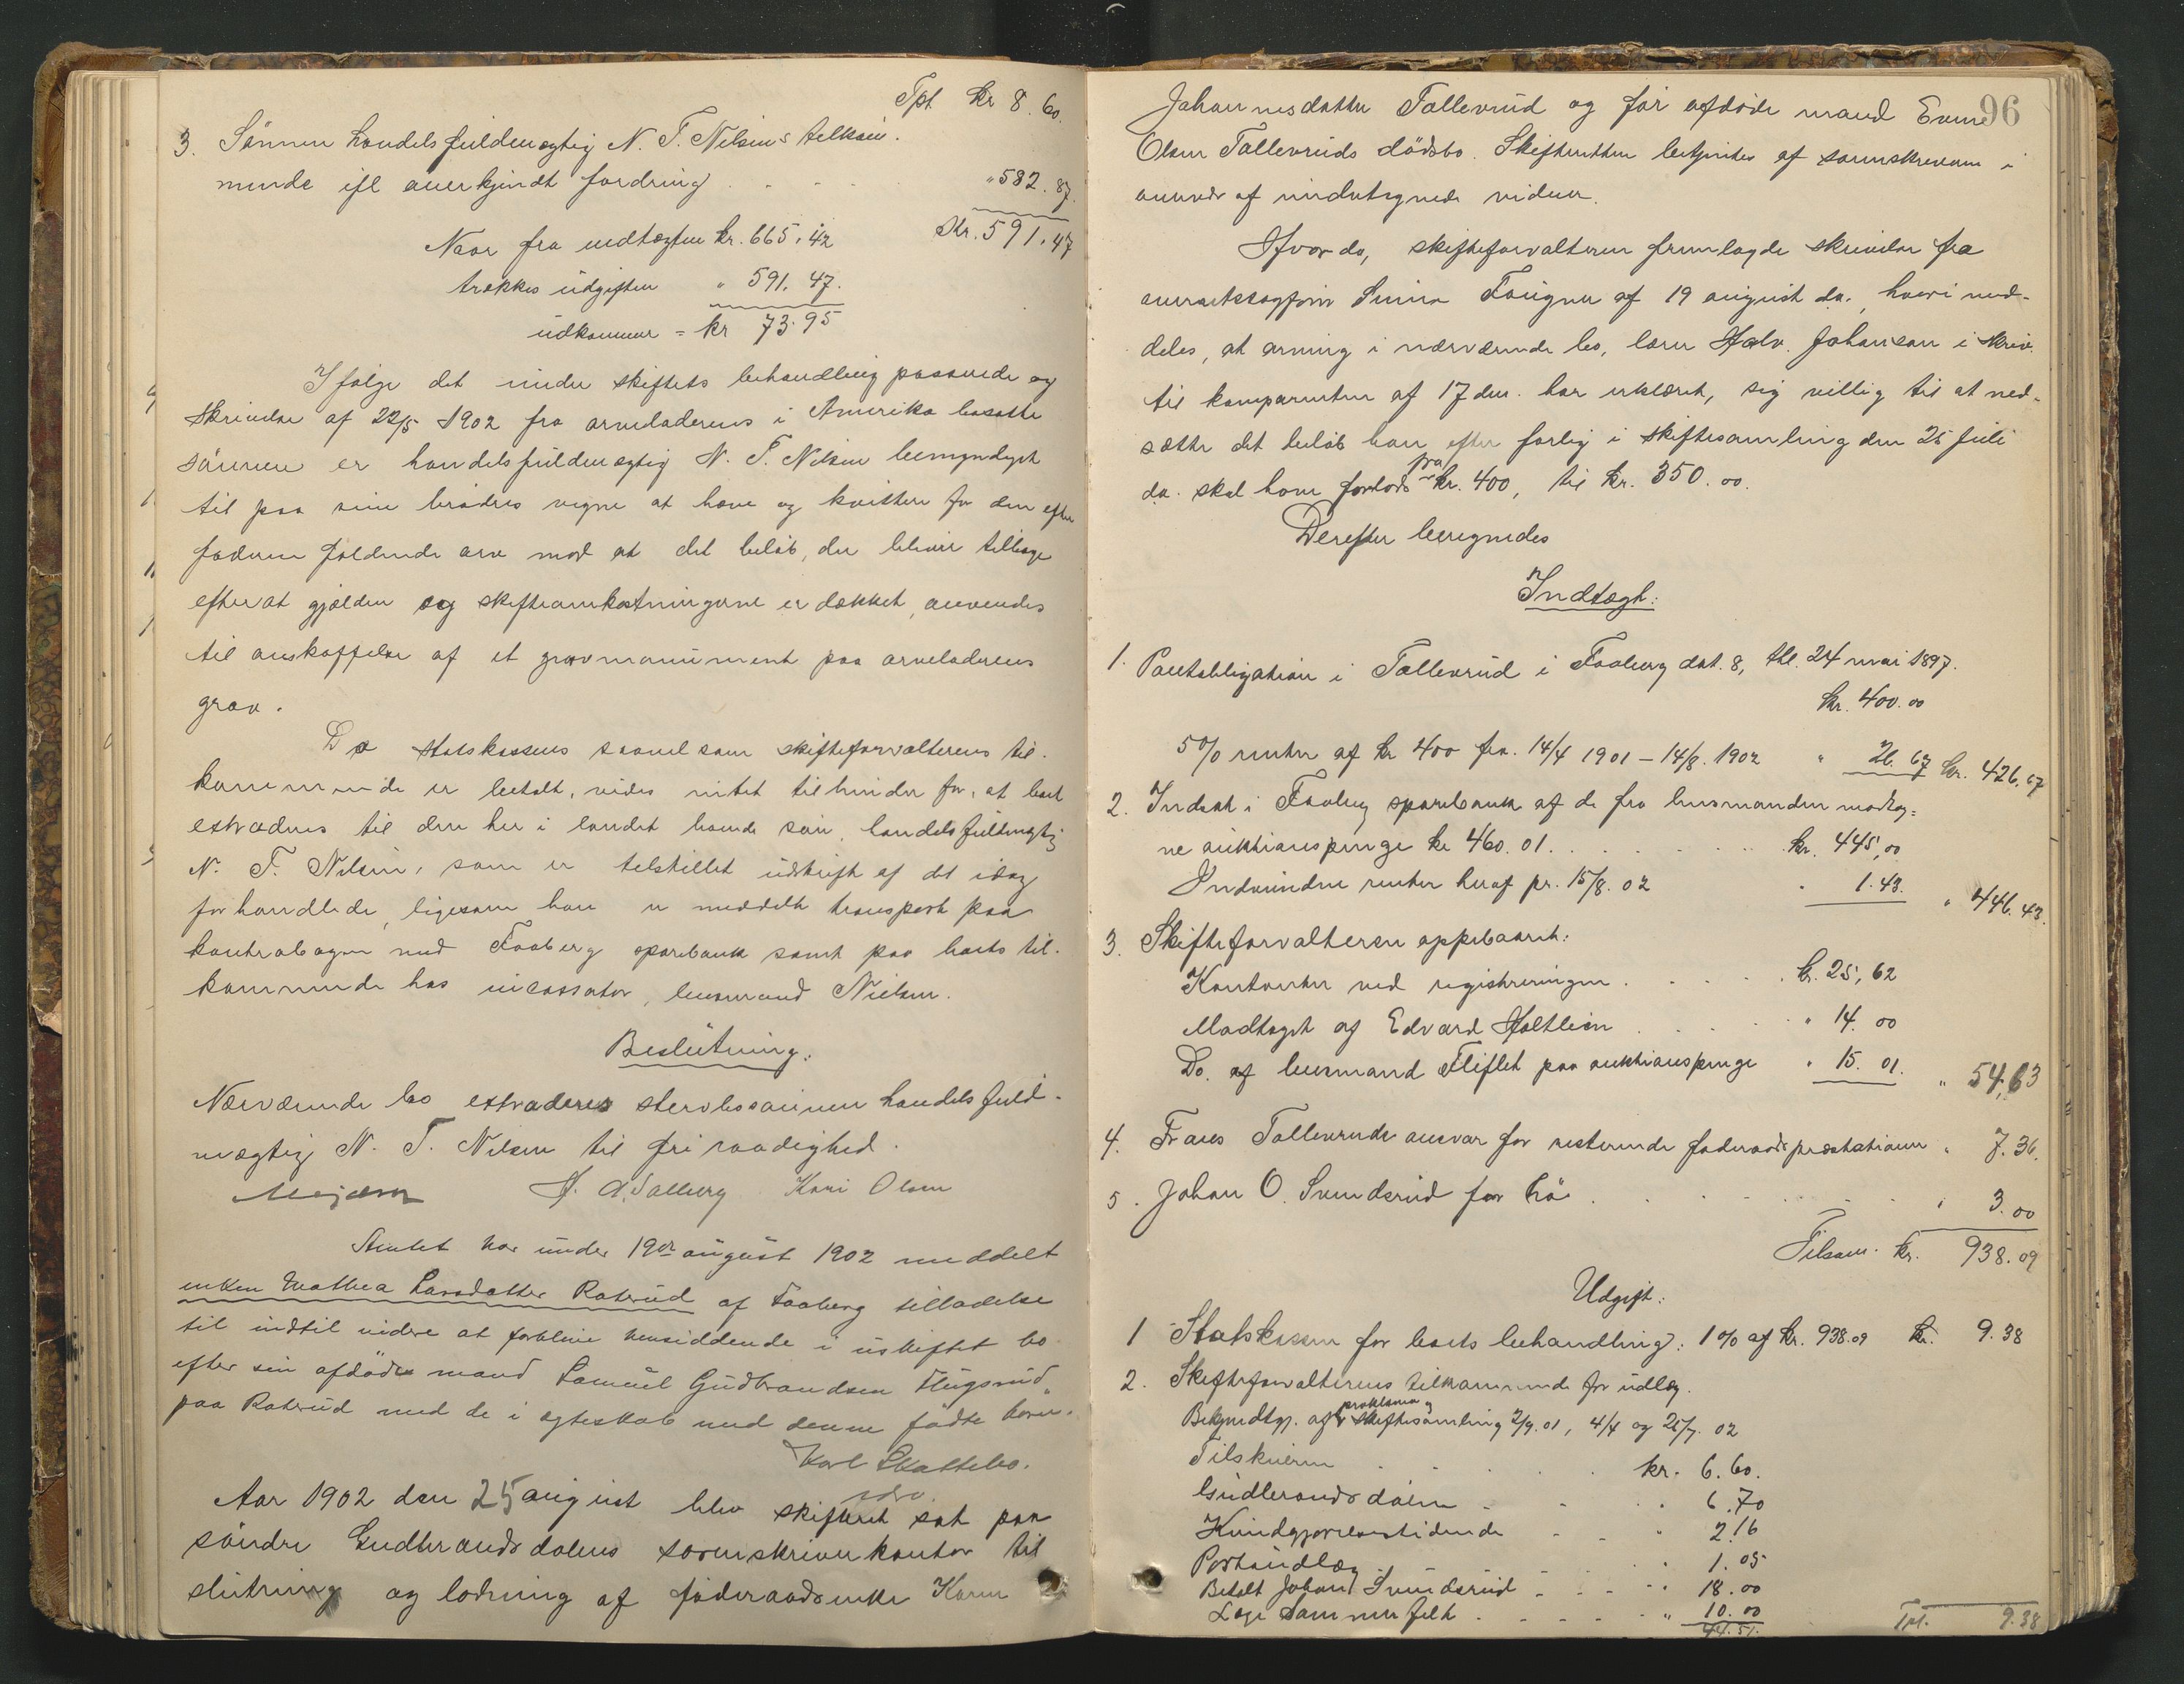 Tpt kr 8.60.
3. Sönnen handelsfuldmægtig N. T. Nilsens tilkom-
mende ifl anerkjendt fordring . . . " 582.87.
kr. 591.47
Naar fra indtægten kr. 665.42
trækkes udgiften " 591.47.
udkommer = kr 73.95
Ifølge det under skiftets behandling passerede og
skrivelse af 22/5 1902 fra arveladerens i Amerika bosatte
sønner er handelsfuldmægtig N. T. Nilsen bemyndiget
til paa sine brødres vegne at hæve og kvittere for den efter
faderen faldende arv mod at det beløb, der bliver tilbage
efterat gjælden og skifteomkostningerne er dækket, anvendes
til anskaffelse af et gravmonument paa arveladerens
grav.
Da statskassens saavelsom skifteforvalterens til-
kommende er betalt, vides intet tilhinder for, at boet
extraderes til den her i landet boende søn, handelsfuldmægtig
N. T. Nilsen, som er tilstillet udskrift af det idag
forhandlede, ligesom han er meddelt transport paa
kontrabogen med Faaberg sparebank samt paa boets til-
kommende hos incassator, lensmand Nielsen.
Beslutning:
Nærværende bo extraderes stervbosønnen handelsfuld-
mægtig N. T. Nilsen til fri raadighed.
Mejdell A. Salberg Kari Olsen
Amtet har under 19de august 1902 meddelt
enken Mathea Larsdatter Roterud af Faaberg tilladelse
til indtil videre at forblive hensiddende i uskiftet bo
efter sin afdøde mand Samuel Gudbrandsen Flugsrud
paa Roterud med de i egteskab med denne fødte børn.
Karl Skattebo.
Aar 1902 den 25 august blev skifteret sat paa
søndre Gudbrandsdalens sorenskriverkontor til
slutning og lodning af føderaadsenke Karen
96
Johannesdatter Tollevrud og før afdøde mand Even
Olsen Tollevruds dødsbo. Skifteretten betjentes af sorenskriveren i
overvær af undertegnede vidner.
Hvor da, skifteforvalteren fremlagde skrivelse fra
overretssagfører Simen Fougner af 19 august ds. hvori med-
deles, at arving i nærværende bo, lærer Halv. Johansen i skriv.
til komparenten af 17 ds. har erklæret, sig villig til at ned-
sætte det beløb han efter forlig i skiftesamling den 25 juli
ds. skal have forlods fra kr. 400, til kr. 350.00.
Derefter beregnedes
Indtægt:
1. Pantobligation i Tollevrud i Faaberg dat. 8, thl. 24 mai 1897.
kr. 400.00
5% renter af kr 400 fra. 14/4 1901 – 14/8. 1902 " 26.67 kr. 426.67
2. Indsat i Faaberg sparebank af de fra lensmanden modtag-
ne auktionspenge kr 460.01. . . . kr. 445.00
Indvundne renter heraf pr. 15/8. 02 " 1.43. " 446.43.
3. Skifteforvalteren oppebaaret:
Kontanter ved registreringen . . . kr. 25,62
Modtaget af Edvard Holtlien . . . " 14.00
Do. af lensmand Fliflet paa auktionspenge " 15.01. " 54,63
4. Frans Tollevruds ansvar for resterende føderaadspræstationer " 7.36.
5. Johan O. Svendsrud for hø . . . " 3.00
Tilsam. kr. 938.09
Udgift:
1 Statskassen for boets behandling: 1% af kr. 938.09 kr. 9.38
2. Skifteforvalterens tilkommende for udlæg.
Bekjendtgj. af proklama og skiftesamling 2/9.01, 4/4 og 25/7. 02
Tilskueren . . . kr. 6.60.
Gudbrandsdølen . . . " 6.70
Kundgjørelsestidende . . . " 2.16
Portoudlæg . . . " 1.05
Betalt Johan Svendsrud . . . " 18.00
Læge Sommerfelt . . . " 10.00
44.51.
Tpt. 9.38